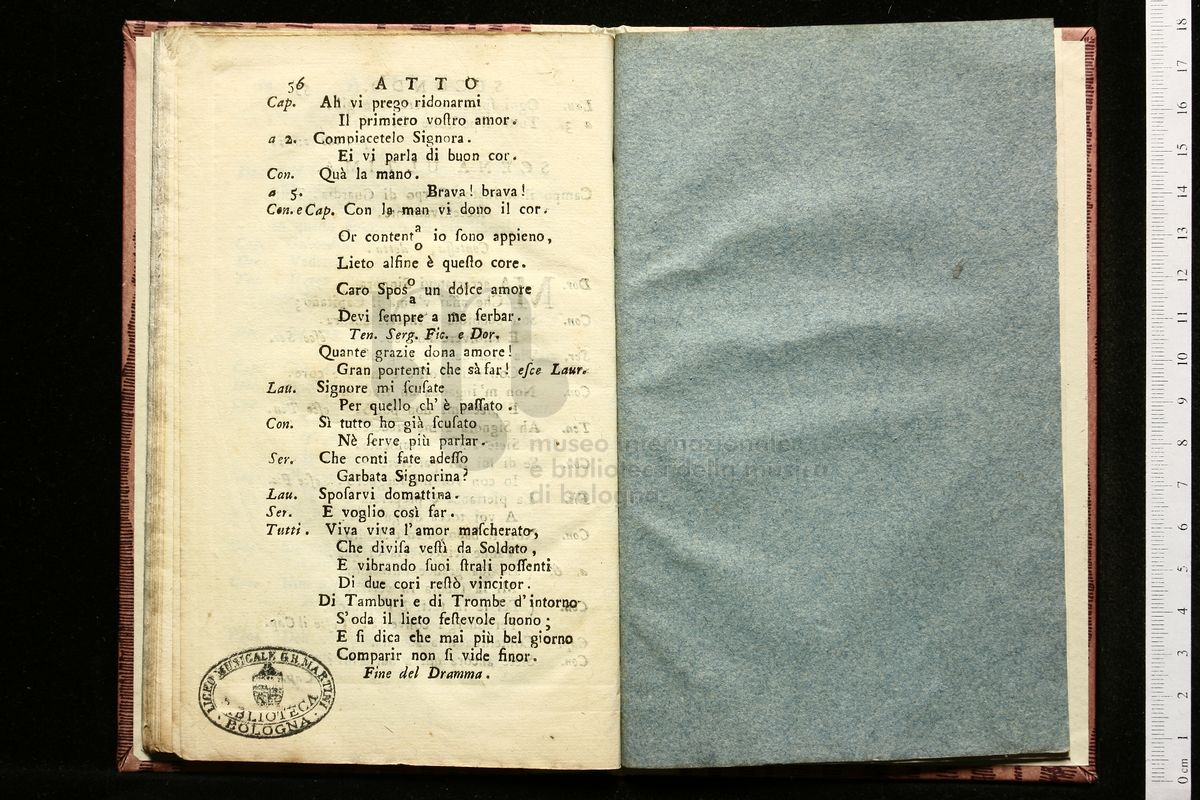 56 ATTO
Cap. Ah vi prego ridonarmi
Il primiero voſtro amor.
a 2. Compiacetelo Signora.
Ei vi parla di buon cor.
Con. Quà la mano.
a 5. Brava! brava!
Con. e Cap. Con la man vi dono il cor.
Or contentᵃₒ io ſono appieno,
Lieto alfine è queſto core.
Caro Spoſᵒₐ un dolce amore
Devi ſempre a me ſerbar.
Ten. Serg. Fic. e Dor.
Quante grazie dona amore!
Gran portenti che sà far! eſce Laur.
Lau. Signore mi ſcuſate
Per quello ch' è paſſato.
Con. Sì tutto ho già ſcuſato
Nè ſerve più parlar.
Ser. Che conti fate adeſſo
Garbata Signorina?
Lau. Spoſarvi domattina.
Ser. E voglio così far.
Tutti. Viva viva l'amor maſcherato,
Che diviſa veſtì da Soldato,
E vibrando ſuoi ſtrali poſſenti
Di due cori reſtò vincitor.
Di Tamburi e di Trombe d'intorno
S'oda il lieto feſtevole ſuono;
E ſi dica che mai più bel giorno
Comparir non ſi vide finor.
Fine del Dramma.
LICEO MUSICALE G.B. MARTINI
BIBLIOTECA
BOLOGNA
museo internazionale
e biblioteca della musica
di bologna
0 cm 1 2 3 4 5 6 7 8 9 10 11 12 13 14 15 16 17 18